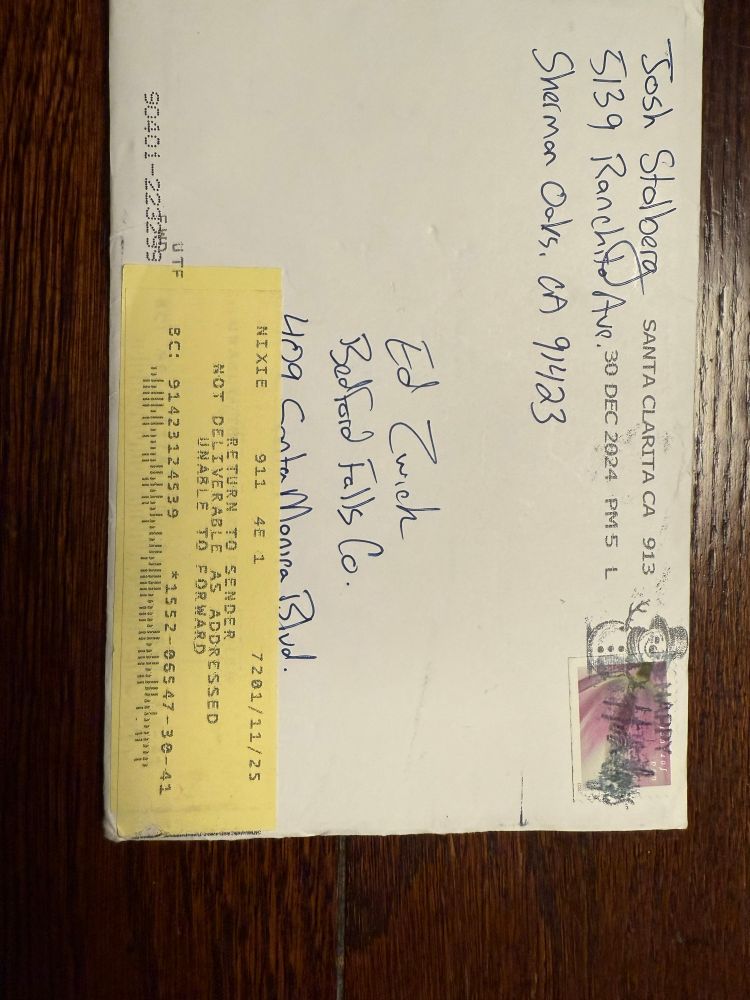 Josh Stalberg
5139 Ranchito Ave.
Sherman Oaks, CA 91423
SANTA CLARITA CA 913
30 DEC 2024 PM 5 L
HAPPY
Ed Zwick
Bedford Falls Co.
409 Santa Monica Blvd.
NIXIE 911 4E 1 7201/11/25
RETURN TO SENDER
NOT DELIVERABLE AS ADDRESSED
UNABLE TO FORWARD
BC: 91423124539 *1552-06547-30-41
UTF